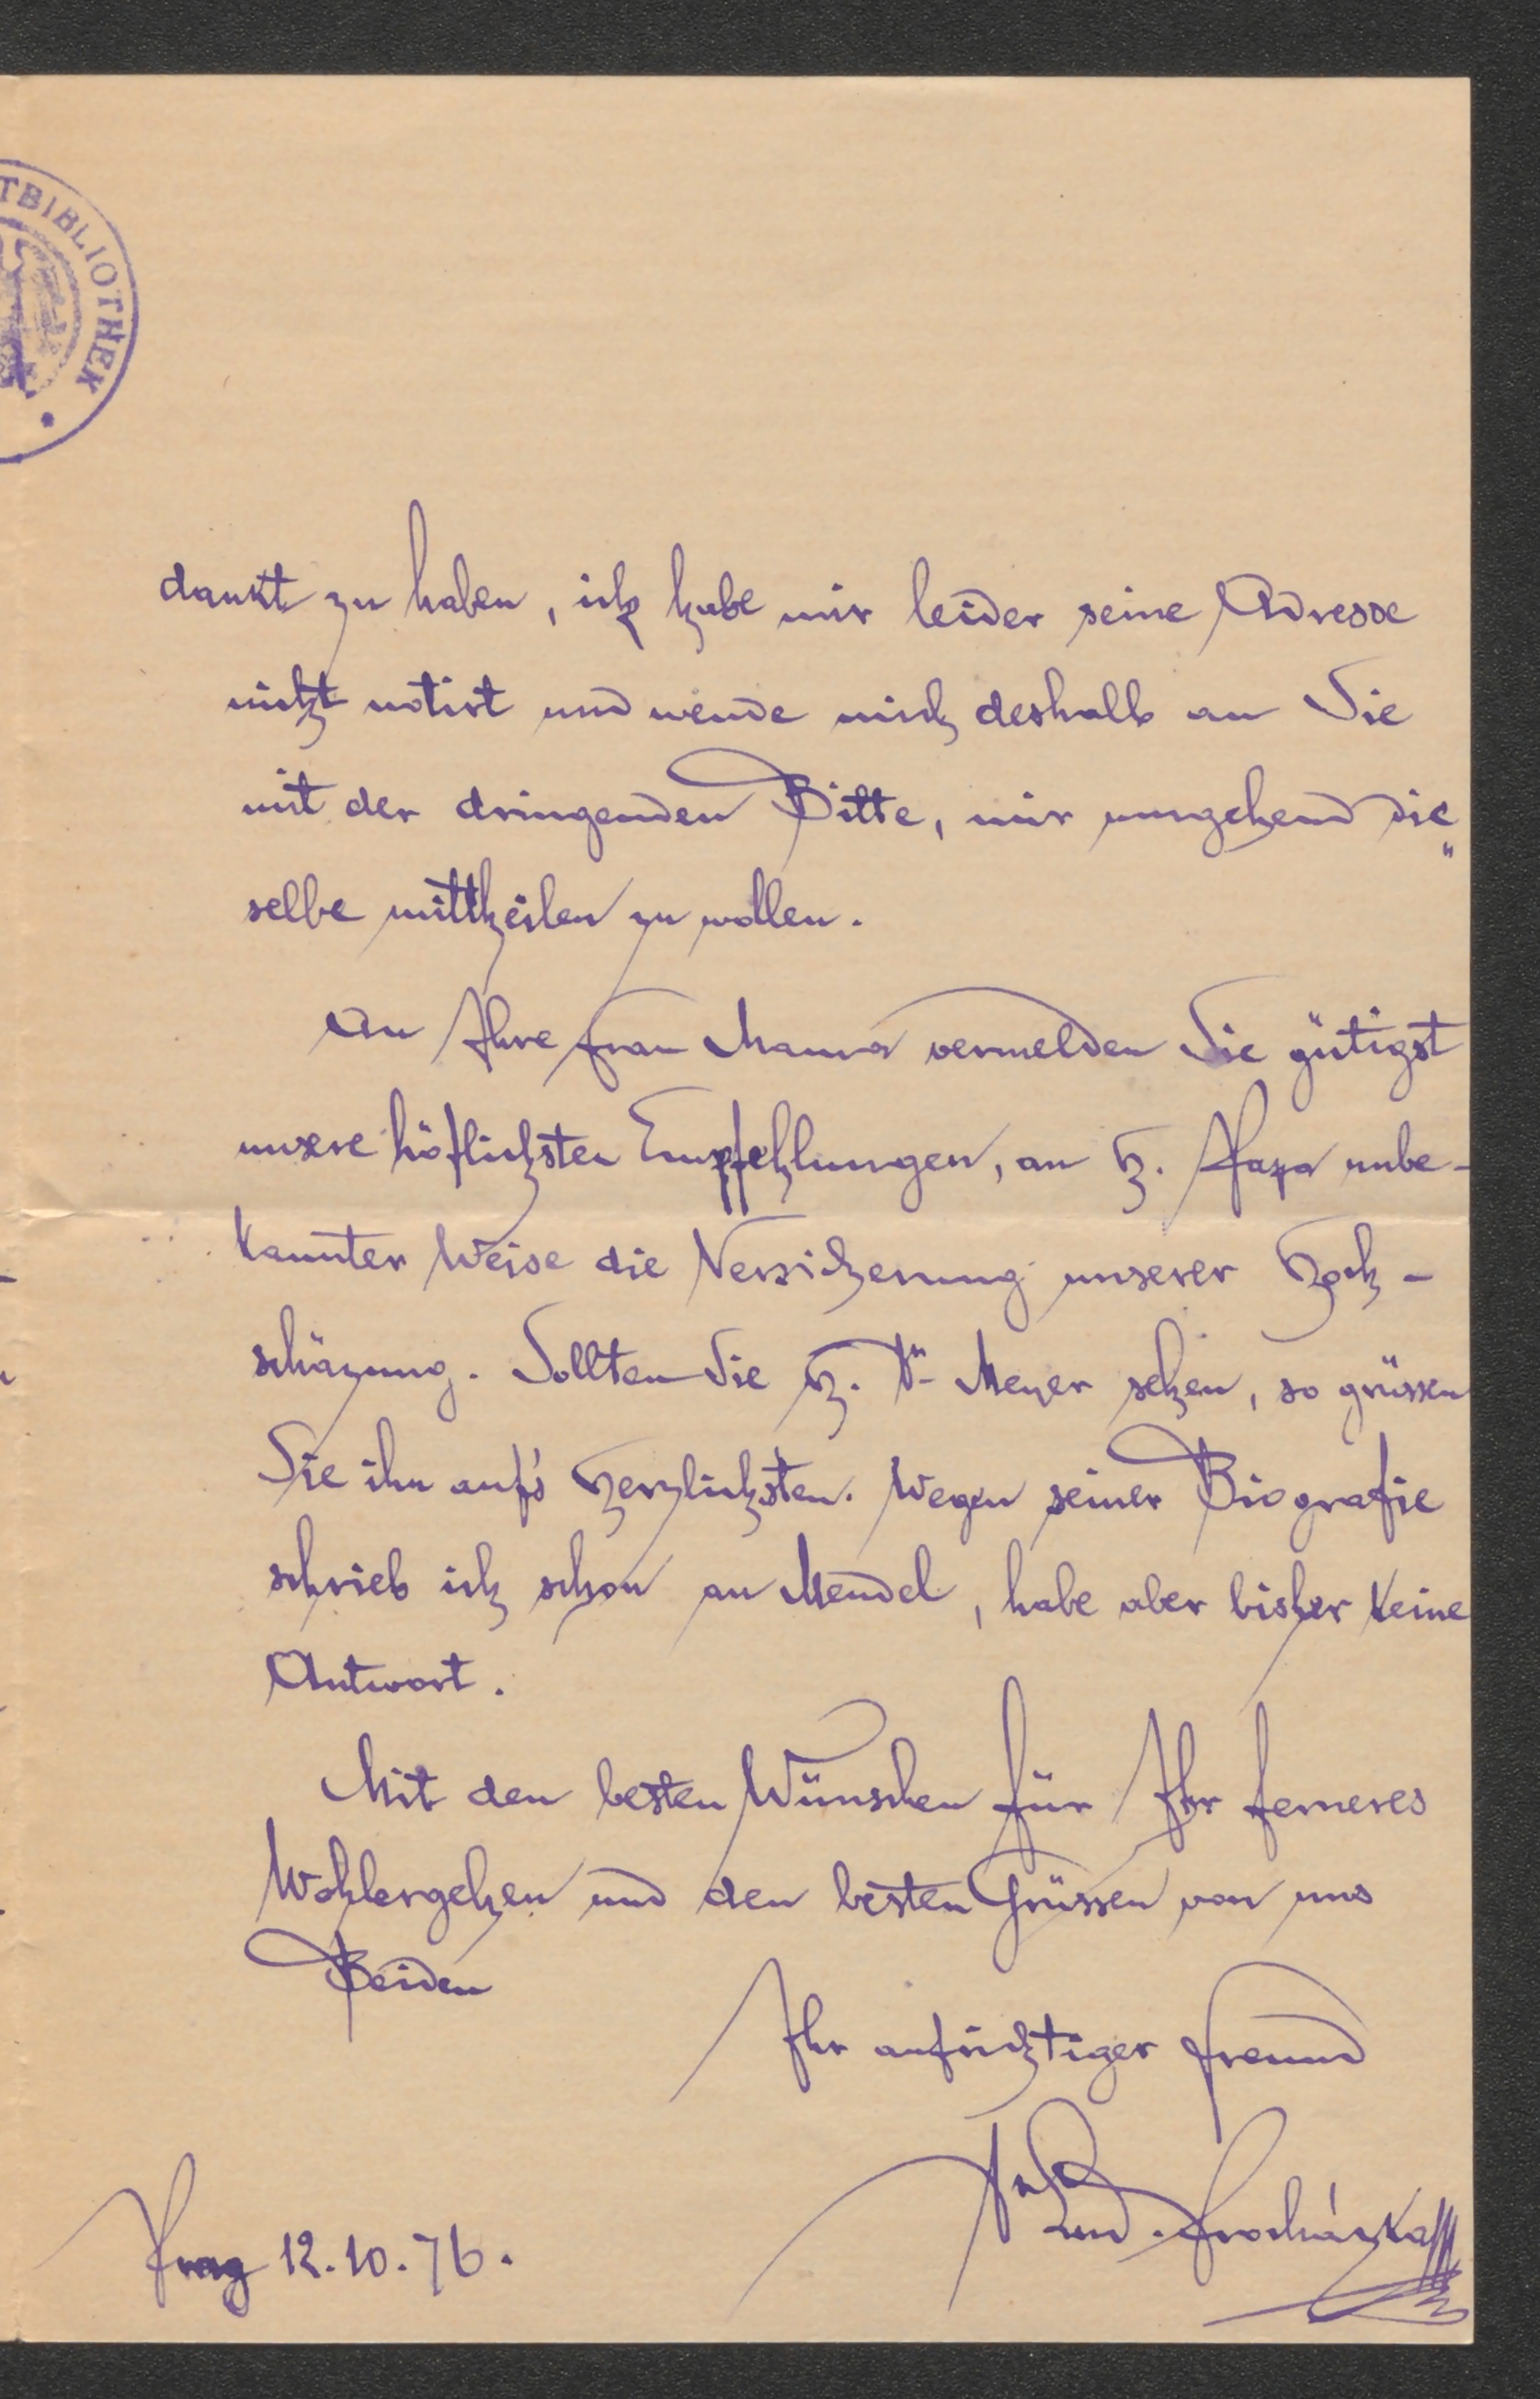 TBIBLIOTHEK
dankt zu haben, ich habe mir leider seine Adresse
nicht notirt und wende mich deshalb an Sie
mit der dringenden Bitte, mir umgehend die„
selbe mittheilen zu wollen.
An Ihre Frau Mama vermelden Sie gütigst
unsere höflichsten Empfehlungen, an H. Papa unbe-
kannter Weise die Versicherung unserer Hoch-
schäzung. Sollten Sie H. Dr Meyer sehen, so grüssen
Sie ihn auf's Herzlichsten. Wegen seiner Biografie
schrieb ich schon an Mendel, habe aber bisher keine
Antwort.
Mit den besten Wünschen für Ihr ferneres
Wohlergehen und den besten Grüssen von uns
Beiden
Ihr aufrichtiger Freund
Dr Lud. Procházka
Prag 12.10.76.